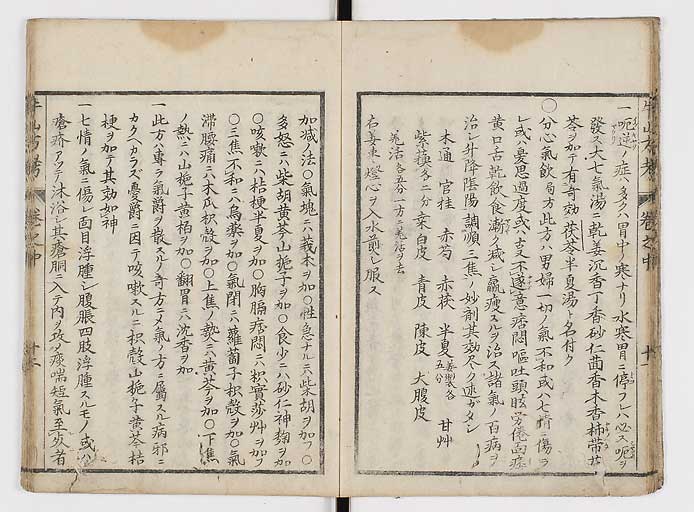 一呃逆ノ症ハ多クハ胃中ノ寒ナリ水寒胃ニ停フレハ必ス呃ヲ
發ス大七氣湯ニ乾姜沉香丁香砂仁茴香木香柿帶
苓ヲ加テ有奇効茯苓半夏湯ト名付ク
〇分心氣飲 局方此方ハ男婦一切ノ氣不和或ハ七情ニ傷ラ
レ或ハ憂思過度或ハ事不遂意痞悶嘔吐頭眩勞倦面痿
黄口舌乾飲食漸ク減シ羸瘦スルヲ治ス諸氣ノ百病ヲ
治シ升降陰陽調順三焦ノ妙剤其効尽ク述ガタシ
木通 官桂 赤芍 赤茯 半夏 姜製各五分 甘艸
紫蘓各二分 桒白皮 青皮 陳皮 大腹皮
羗活各五分一方ニ羗活ヲ去
右姜棗燈心ヲ入水煎シ服ス
加減ノ法〇氣塊ニハ莪朮ヲ加フ〇性急ナルニハ柴胡ヲ加フ〇
多怒ニハ柴胡黄芩山梔子ヲ加〇食少ニハ砂仁神麹ヲ加
〇咳嗽ニハ桔梗半夏ヲ加〇胸膈痞悶ニハ枳實莎艸ヲ加フ
〇三焦不和ニハ烏藥ヲ加〇氣閉ニハ蘿蔔子枳殻ヲ加〇氣
滞腰痛ニハ木瓜枳殻ヲ加〇上焦ノ熱ニハ黄芩ヲ加〇下焦
ノ熱ニハ山梔子黄栢ヲ加〇翻胃ニハ沈香ヲ加
一此方ハ専ラ氣欝ヲ散スルノ奇方ニテ氣ノ方ニ屬スル病邪ニ
カヽハラズ憂欝ニ因テ咳嗽スルニ枳殻山梔子黄芩桔
梗ヲ加テ其効如神
一七情ノ氣ニ傷レ面目浮腫シ腹脹四肢浮腫スルモノ或ハ
瘡疥アツテ沐浴シ其瘡胴ニ入テ内ヲ攻メ痰喘短氣至急者